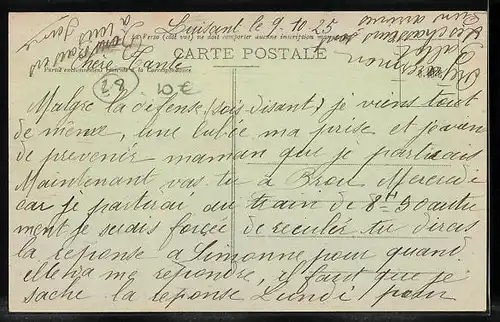 Luisant le 9.10.25
Le Verso (côté vue) ne doit comporter aucune inscription
CARTE POSTALE
Partie exclusivement réservée à la Correspondance
Chère Tante
28 10€
Malgre la défense (sois disant) je viens tout
de même, une lubie ma prise et je vien
de prevenir maman que je partirais
Maintenant vas tu à Brou Mercredi
car je partirai au train de 8H 30 autre
ment je serais forcée de reculer tu diras
la reponse a Simonne pour quand
elle va me repondre, il faut que je
sache la reponse Lundi pour